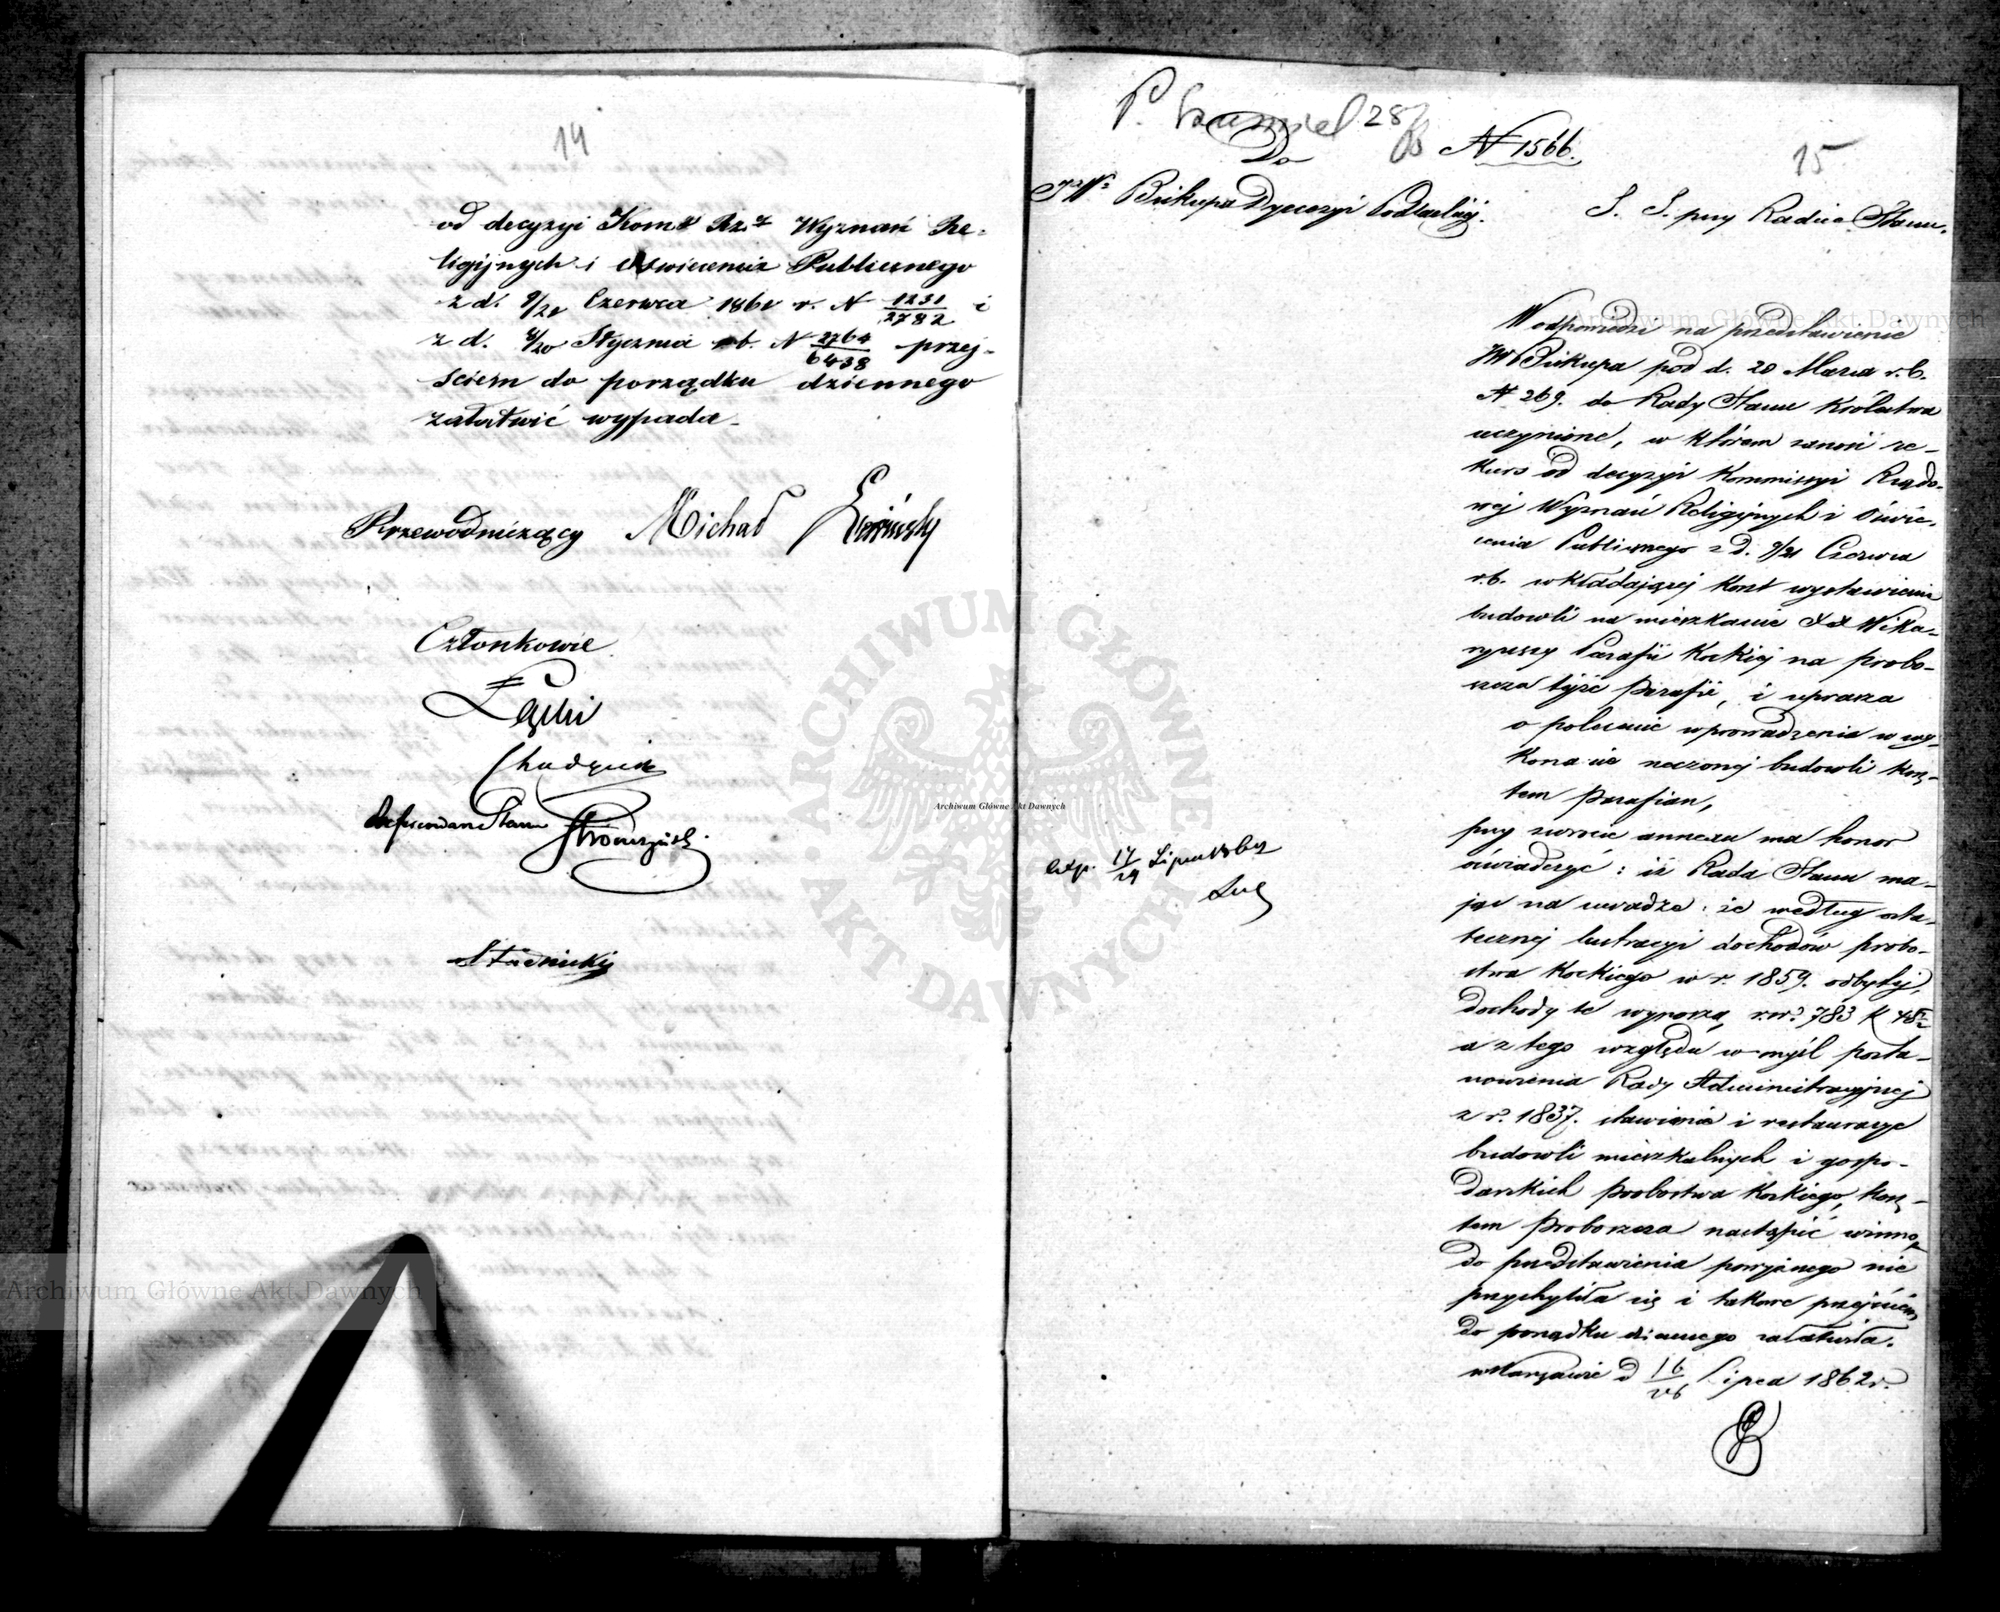 14
od decyzyi Komi Rz. Wyznań Re-
ligijnych i Oswiecenia Publicznego
z d. 9/21 Czerwca 1861 r. N 1231/2782 i
z d. 8/20 Stycznia rb. N 2764/6438 przej-
ściem do porządku dziennego
załatwić wypada.
Przewodniczący Michał
Członkowie
Łęski
Stronczyński
Studnicki
P. 28/
Do
N 1566.
15
JW Biskupa Dyecezyi Podlaskiej.
S. S. przy Radzie Stanu.
W odpowiedzi na przedstawienie
JW Biskupa pod d. 20 Marca r.b.
N 269. do Rady Stanu Królestwa
uczynione, w którem zanosi re-
kurs od decyzyi Kommissyi Rządo-
wej Wyznań Religijnych i Oświe-
cenia Publicznego z d. 9/21 Czerwca
r.b. wkładającej koszt wystawienia
budowli na mieszkanie XX Wika-
ryuszy Parafii Kockiej na probo-
szcza tejże Parafii, i uprasza
o polecenie wprowadzenia w wy-
konanie rzeczonej budowli kosz-
tem Parafian,
przy zwrocie annexu ma honor
oświadczyć: iż Rada Stanu ma-
jąc na uwadze: że według osta-
tecznej lustracyi dochodów probo-
stwa Kockiego w r. 1859. odbytej,
dochody te wynoszą rs. 783 k 48½
a z tego względu w myśl posta-
nowienia Rady Administracyjnej
z r. 1837. stawienie i restauracye
budowli mieszkalnych i gospo-
darskich probostwa Kockiego, kosz-
tem Proboszcza nastąpić winno
do przedstawienia powyższego nie
przychyliła się i takowe przejściem
do porządku dziennego załatwiła.
w Warszawie d 16/28 Lipca 1862 r.
exp. 17/29 Lipca 1862
Archiwum Główne Akt Dawnych
Archiwum Główne Akt Dawnych
Archiwum Główne Akt Dawnych
ARCHIWUM GŁÓWNE AKT DAWNYCH